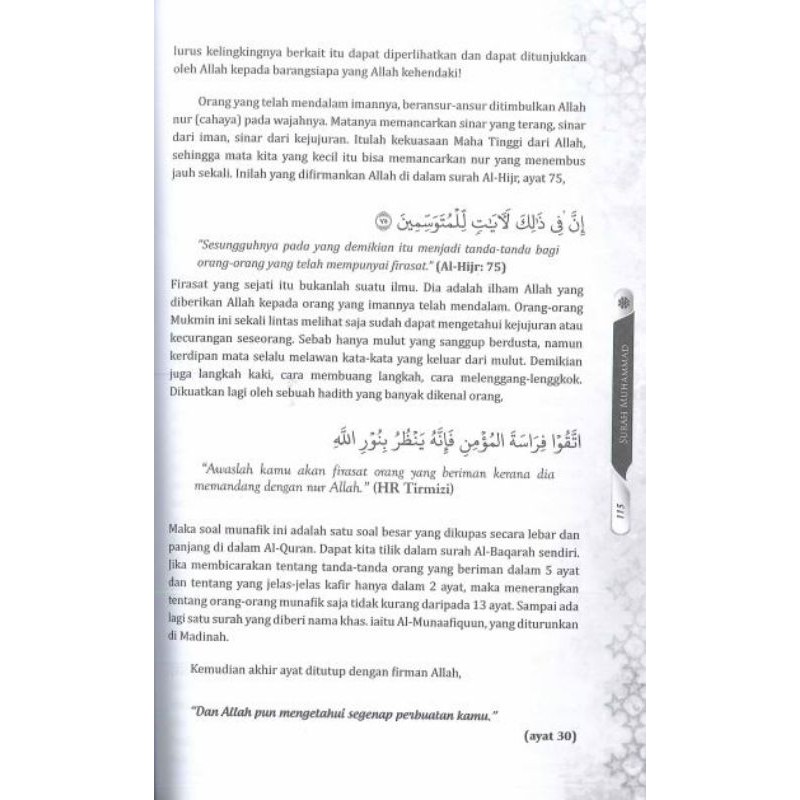 lurus kelingkingnya berkait itu dapat diperlihatkan dan dapat ditunjukkan
oleh Allah kepada barangsiapa yang Allah kehendaki!
Orang yang telah mendalam imannya, beransur-ansur ditimbulkan Allah
nur (cahaya) pada wajahnya. Matanya memancarkan sinar yang terang, sinar
dari iman, sinar dari kejujuran. Itulah kekuasaan Maha Tinggi dari Allah,
sehingga mata kita yang kecil itu bisa memancarkan nur yang menembus
jauh sekali. Inilah yang difirmankan Allah di dalam surah Al-Hijr, ayat 75,
إِنَّ فِي ذَٰلِكَ لَآيَاتٍ لِّلْمُتَوَسِّمِينَ ٧٥
"Sesungguhnya pada yang demikian itu menjadi tanda-tanda bagi
orang-orang yang telah mempunyai firasat." (Al-Hijr: 75)
Firasat yang sejati itu bukanlah suatu ilmu. Dia adalah ilham Allah yang
diberikan Allah kepada orang yang imannya telah mendalam. Orang-orang
Mukmin ini sekali lintas melihat saja sudah dapat mengetahui kejujuran atau
kecurangan seseorang. Sebab hanya mulut yang sanggup berdusta, namun
kerdipan mata selalu melawan kata-kata yang keluar dari mulut. Demikian
juga langkah kaki, cara membuang langkah, cara melenggang-lenggkok.
Dikuatkan lagi oleh sebuah hadith yang banyak dikenal orang,
اتَّقُوْا فِرَاسَةَ المُؤْمِنِ فَإِنَّهُ يَنْظُرُ بِنُوْرِ اللَّهِ
"Awaslah kamu akan firasat orang yang beriman kerana dia
memandang dengan nur Allah." (HR Tirmizi)
Maka soal munafik ini adalah satu soal besar yang dikupas secara lebar dan
panjang di dalam Al-Quran. Dapat kita tilik dalam surah Al-Baqarah sendiri.
Jika membicarakan tentang tanda-tanda orang yang beriman dalam 5 ayat
dan tentang yang jelas-jelas kafir hanya dalam 2 ayat, maka menerangkan
tentang orang-orang munafik saja tidak kurang daripada 13 ayat. Sampai ada
lagi satu surah yang diberi nama khas. iaitu Al-Munaafiquun, yang diturunkan
di Madinah.
Kemudian akhir ayat ditutup dengan firman Allah,
"Dan Allah pun mengetahui segenap perbuatan kamu."
(ayat 30)
SURAH MUHAMMAD
115